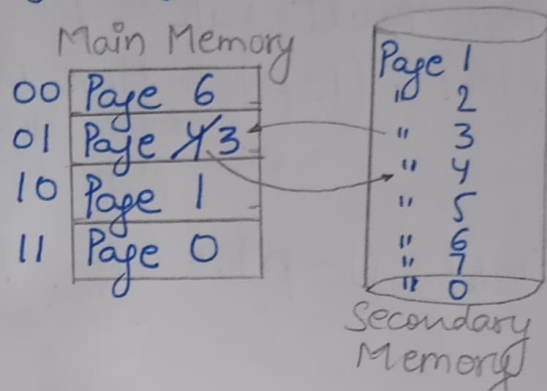 Main Memory
00 Page 6
01 Page 4 3
10 Page 1
11 Page 0
Page 1
" 2
" 3
" 4
" 5
" 6
" 7
" 0
Secondary
Memory